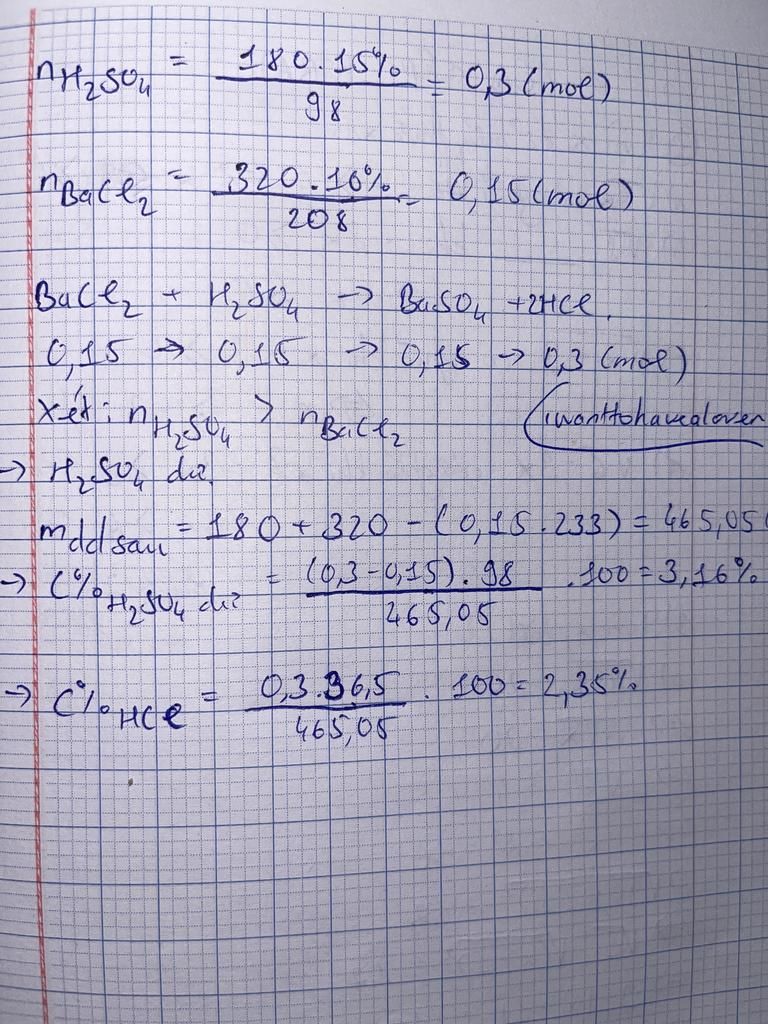 nH₂SO₄ = 180.15% / 98 = 0,3 (mol)
nBaCl₂ = 320.10% / 208 = 0,15 (mol)
BaCl₂ + H₂SO₄ → BaSO₄ + 2HCl.
0,15 → 0,15 → 0,15 → 0,3 (mol)
Xét: nH₂SO₄ > nBaCl₂
iwanttohavealover
→ H₂SO₄ dư
mdd sau = 180 + 320 - (0,15.233) = 465,05
→ C%H₂SO₄ dư = (0,3-0,15).98 / 465,05 .100 = 3,16%
→ C%HCl = 0,3.36,5 / 465,05 . 100 = 2,35%